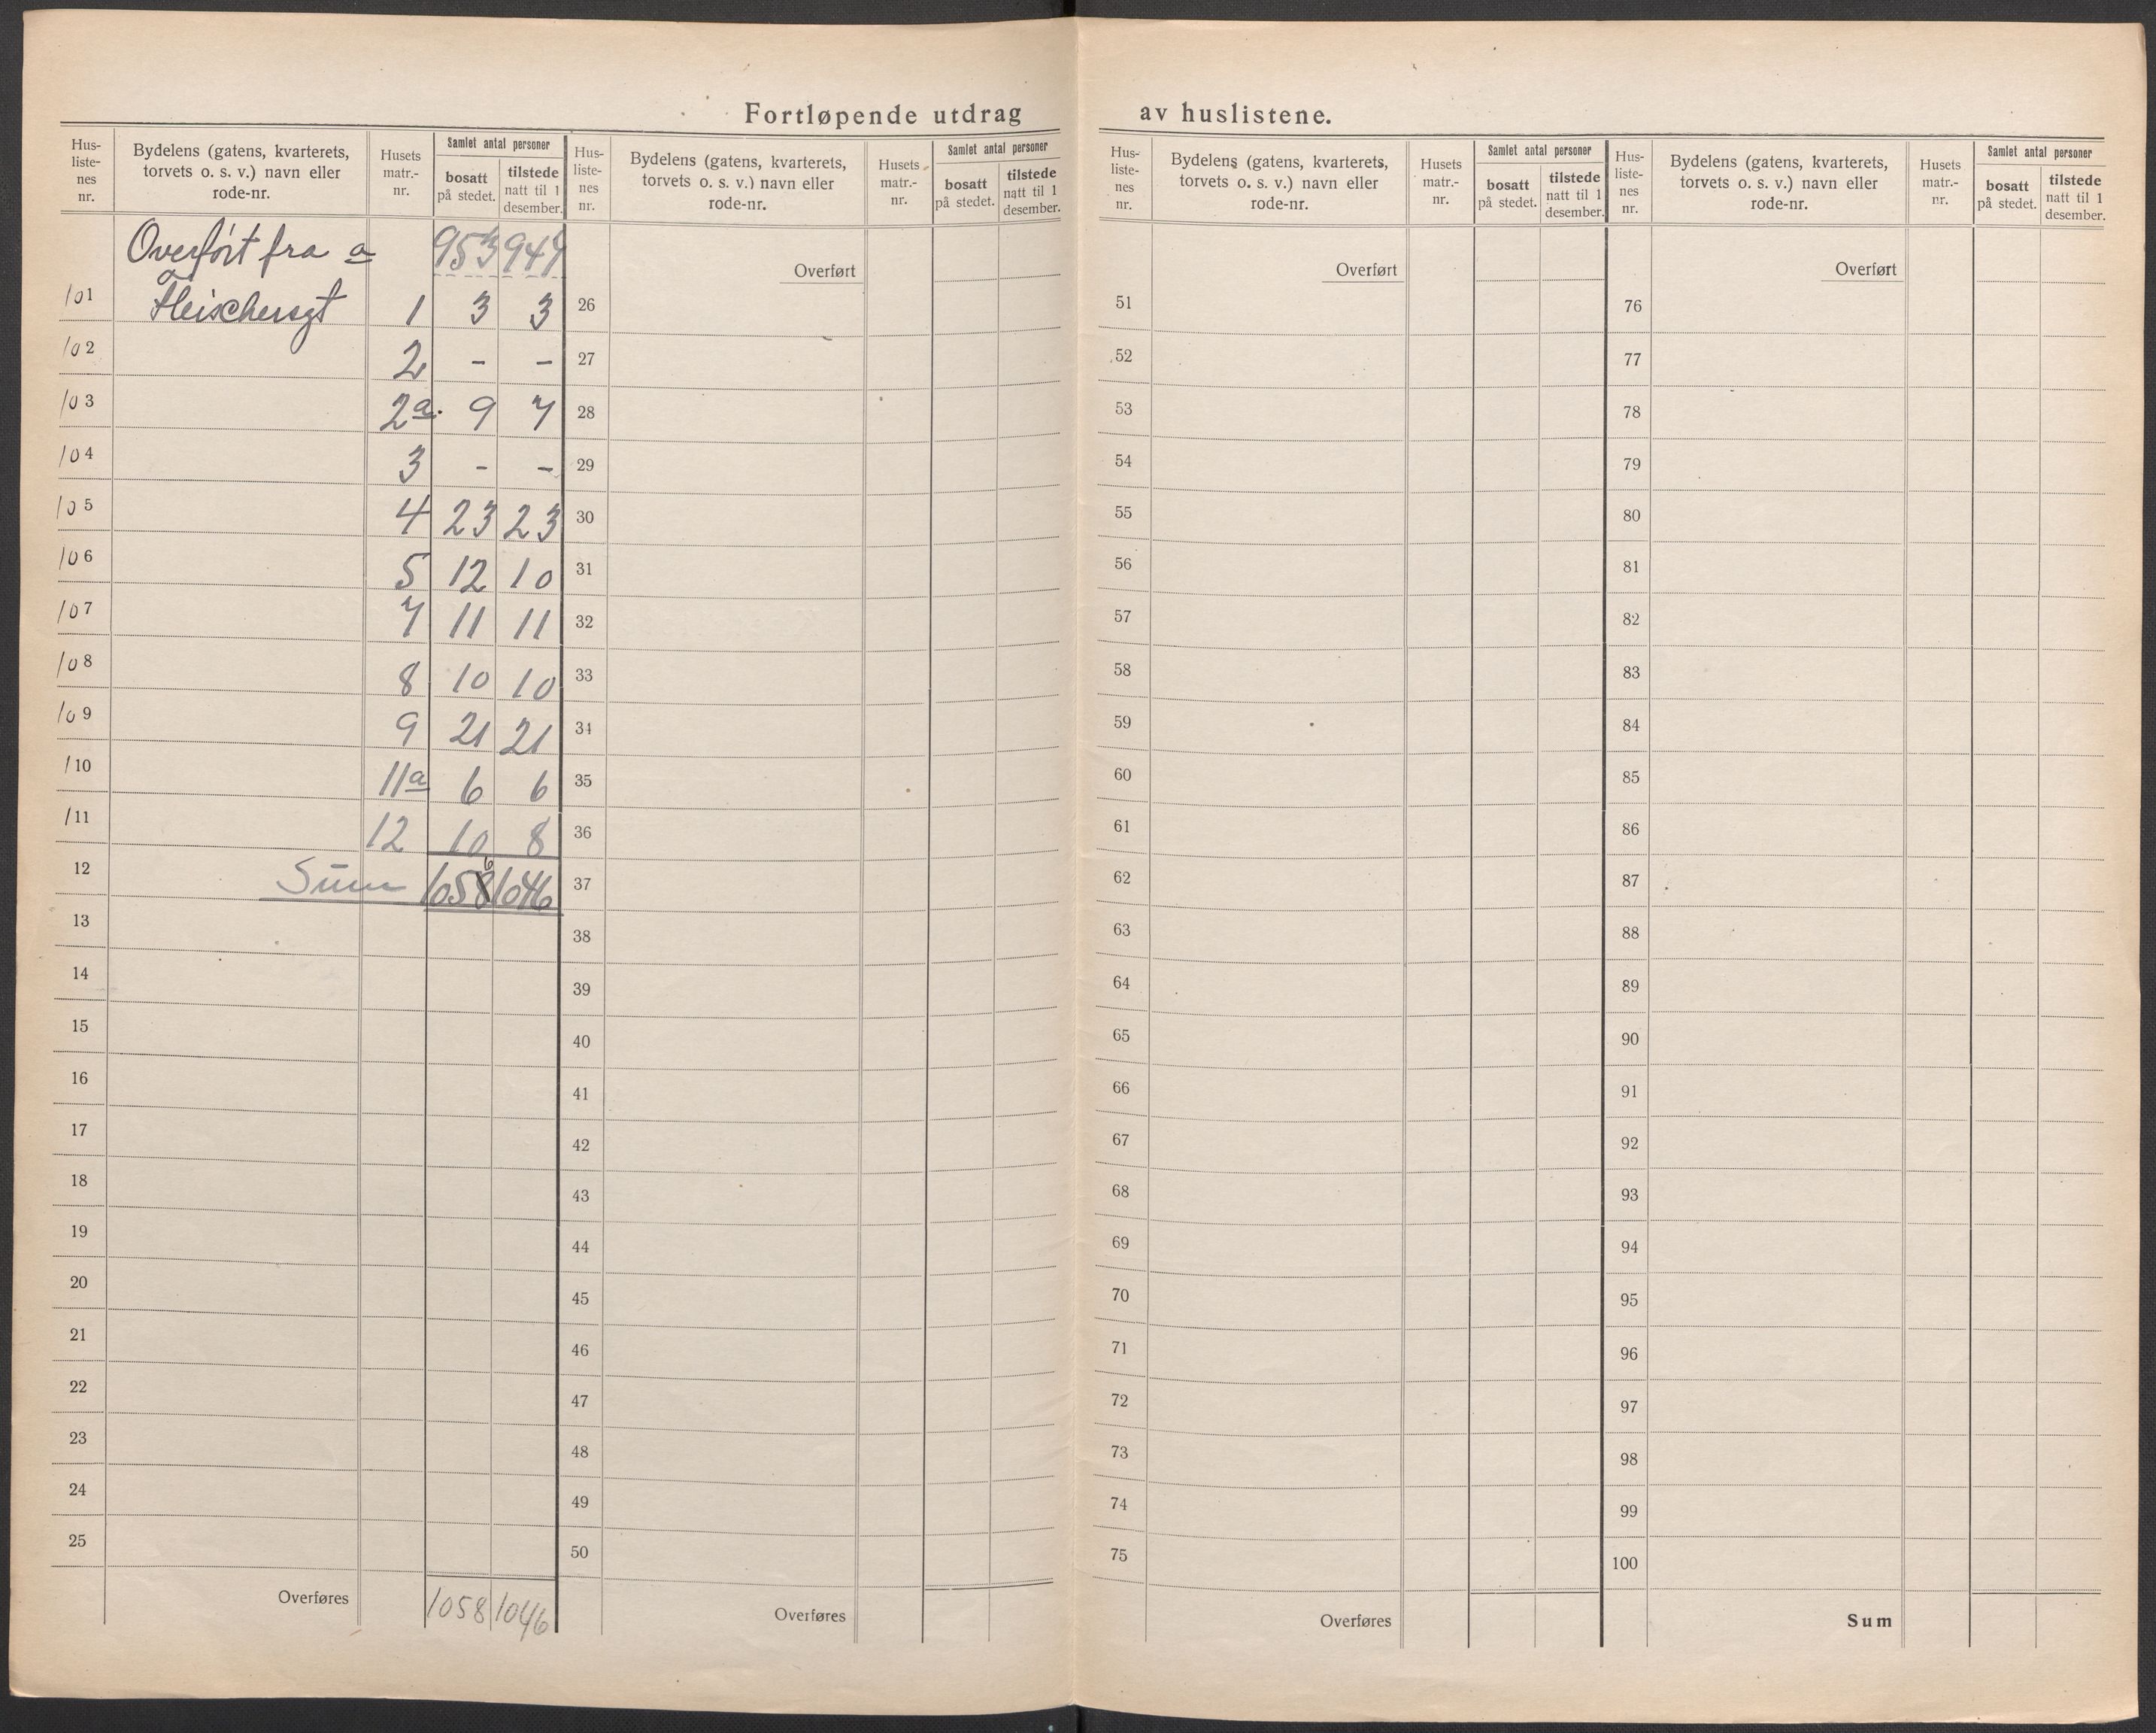 Fortløpende utdrag av huslistene.
Hus-listenes nr. | Bydelens (gatens, kvarterets, torvets o. s. v.) navn eller rode-nr. | Husets matr.-nr. | Samlet antal personer | bosatt på stedet. | tilstede natt til 1 desember.
Overført fra a
101 Fleischersgt 1 3 3
102 2 - -
103 2a. 9 7
104 3 - -
105 4 23 23
106 5 12 10
107 7 11 11
108 8 10 10
109 9 21 21
110 11a 6 6
111 12 10 8
12 Sum 1058 1046
13
14
15
16
17
18
19
20
21
22
23
24
25
Overføres 1058 1046
Hus-liste-nes nr. | Bydelens (gatens, kvarterets, torvets o. s. v.) navn eller rode-nr. | Husets matr.-nr. | Samlet antal personer | bosatt på stedet. | tilstede natt til 1 desember.
Overført
26
27
28
29
30
31
32
33
34
35
36
37
38
39
40
41
42
43
44
45
46
47
48
49
50
Overføres
Hus-liste-nes nr. | Bydelens (gatens, kvarterets, torvets o. s. v.) navn eller rode-nr. | Husets matr.-nr. | Samlet antal personer | bosatt på stedet. | tilstede natt til 1 desember.
Overført
51
52
53
54
55
56
57
58
59
60
61
62
63
64
65
66
67
68
69
70
71
72
73
74
75
Overføres
Hus-liste-nes nr. | Bydelens (gatens, kvarterets, torvets o. s. v.) navn eller rode-nr. | Husets matr.-nr. | Samlet antal personer | bosatt på stedet. | tilstede natt til 1 desember.
Overført
76
77
78
79
80
81
82
83
84
85
86
87
88
89
90
91
92
93
94
95
96
97
98
99
100
Sum